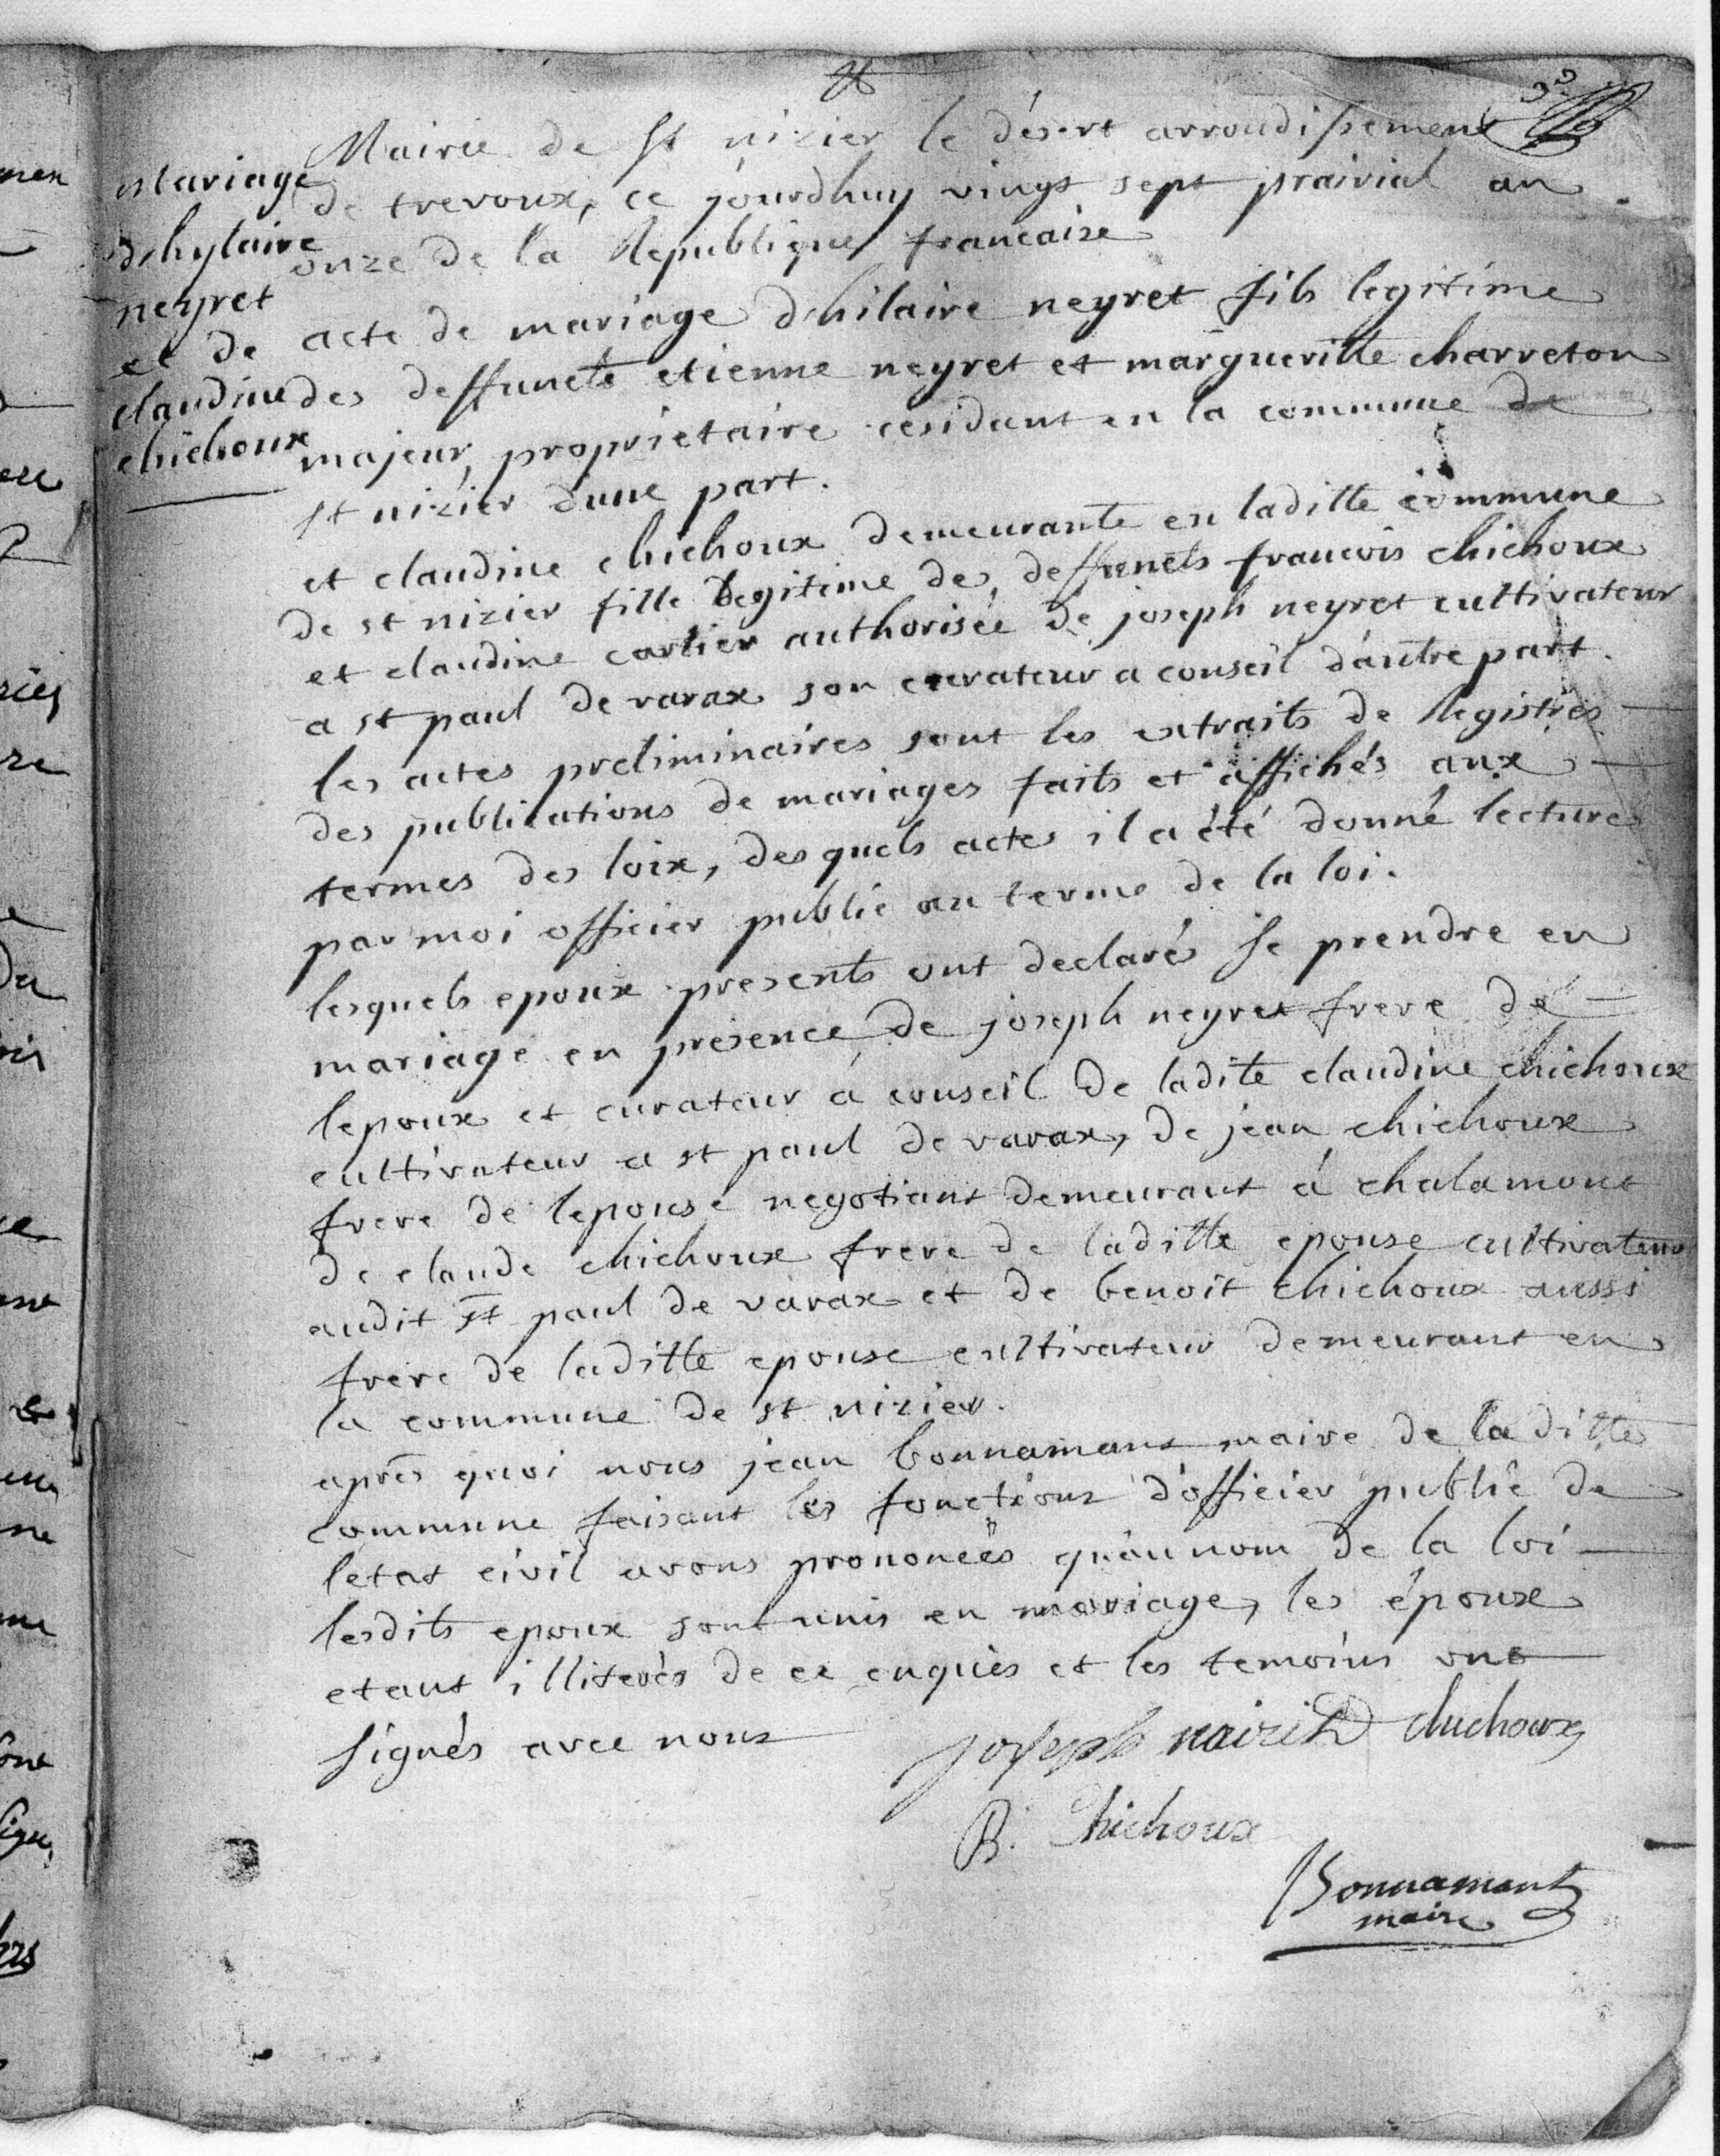 Mairie de St nizier le désert arrondissement
de trevoux, ce jourdhuy vingt sept prairial an
onze de la Republique francaise
mariage
dhylaire
neyret
et de
claudine
chichoux
acte de mariage dhilaire neyret fils legitime
des deffuncts etienne neyret et margueritte charreton
majeur, proprietaire residant en la commune de
st nizier dune part.
et claudine chichoux demeurante en laditte commune
de st nizier fille legitime des deffuncts francois chichoux
et claudine carlier authorisée de joseph neyret cultivateur
a st paul de varax son curateur a conseil dautre part.
les actes preliminaires sont les extraits de Registres
des publications de mariages faits et affichés aux
termes des loix, des quels actes il a été donné lecture
par moi officier public au terme de la loi.
lesquels epoux presents ont declarés se prendre en
mariage en presence de joseph neyret frere de
lepoux et curateur a conseil de ladite claudine chichoux
cultivateur a st paul de varax, de jean chichoux
frere de lepouse negotiant demeurant á chalamont
de claude chichoux frere de laditte epouse cultivateur
audit st paul de varax et de benoit chichoux aussi
frere de laditte epouse cultivateur demeurant en
la commune de st nizier.
aprés quoi nous jean bonnamant maire de la ditte
commune faisant les fonctions d'officier public de
letat civil avons prononcés quau nom de la loi
lesdits epoux sont unis en mariage, les époux
etant illiterés de ce enquis et les temoins ont
signés avec nous
joseph nairet chichoux
B. Chichoux
Bonnamant
maire